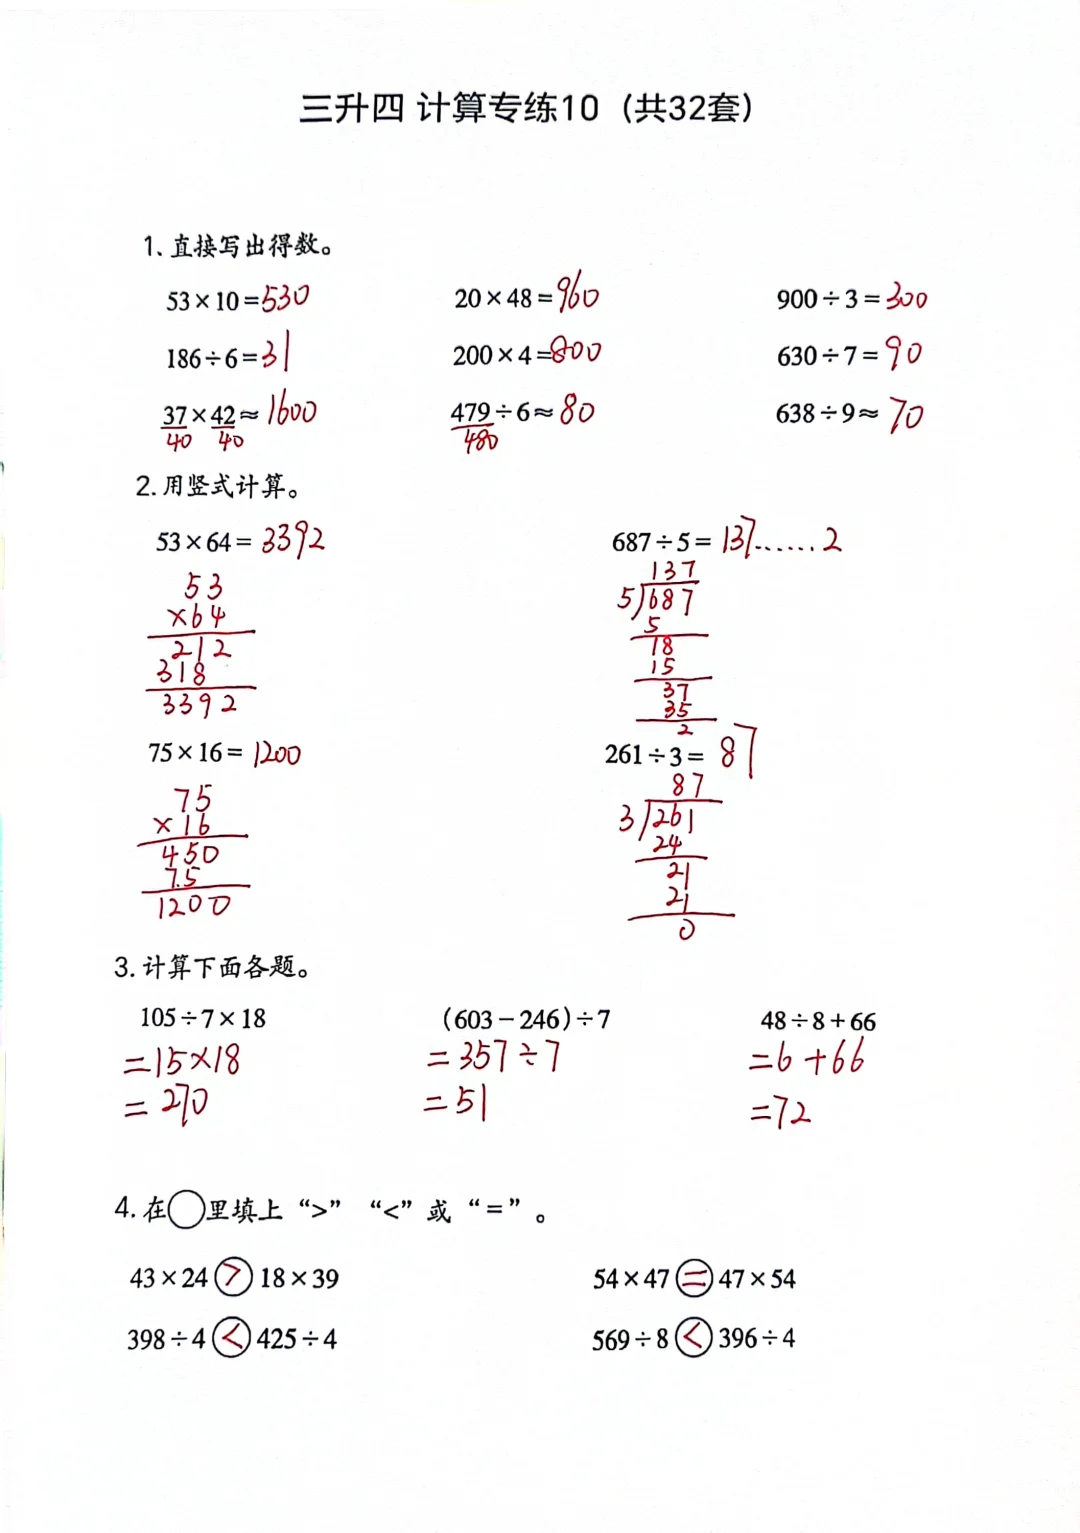 三升四 计算专练10（共32套）
1、直接写出得数。
53×10=530 20×48=960 900÷3=300
186÷6=31 200×4=800 630÷7=90
37×42≈1600 479÷6≈80 638÷9≈70
40 40 480
2.用竖式计算。
53×64=3392 687÷5=137……2
53
×64
212
318
3392
137
5)687
5
18
15
37
35
2
75×16=1200 261÷3=87
75
×16
450
75
1200
87
3)261
24
21
21
0
3.计算下面各题。
105÷7×18 (603-246)÷7 48÷8+66
=15×18 =357÷7 =6+66
=270 =51 =72
4.在○里填上“>”“<”或“=”。
43×24>18×39 54×47=47×54
398÷4<425÷4 569÷8<396÷4